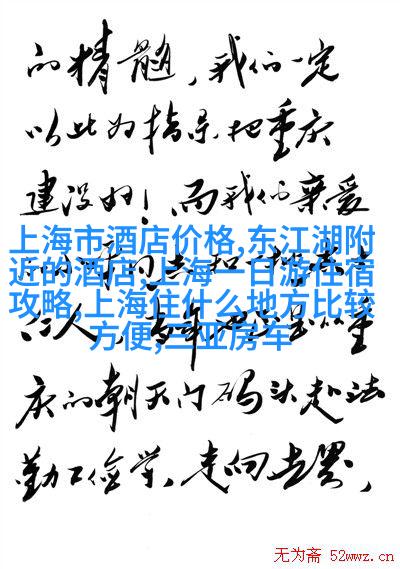 的精髓，我们一定
以此为指导把重庆
建设好！而我们亲爱
上海市酒店价格,东江湖附
近的酒店,上海一日游住宿
攻略,上海住什么地方比较
方便,三亚房车
庆的朝天门码头赴法
勤工俭学，走向世界，
无为斋 52wwz.cn